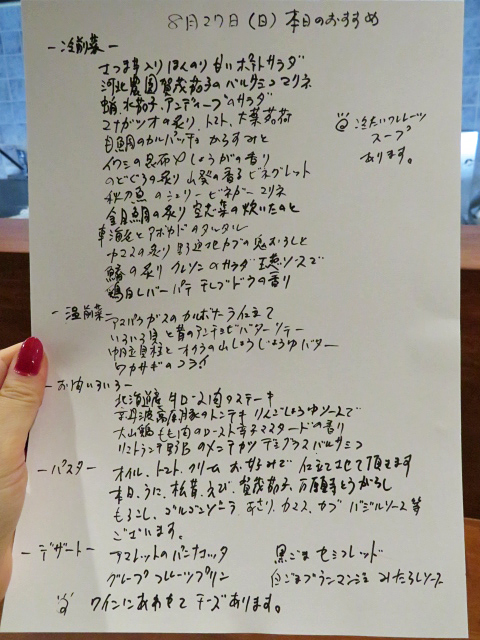 8月27日(日)本日のおすすめ
-冷前菜-
さつま芋入りほんのり甘いポテトサラダ
河北農園賀茂茄子のバルサミコマリネ
蛸、水茄子、アンディーブのサラダ
マナガツオの炙り、トマト、大葉茗荷
白鯛のカルパッチョ からすみと
イワシの昆布〆しょうがの香り
のどぐろの炙り 山葵の香るビネグレット
秋刀魚のシェリービネガーマリネ
金目鯛の炙り 空芯菜の炊いたのと
車海老とアボカドのタルタル
カマスの炙り 野辺地カブの鬼おろしと
鰆の炙り クレソンのサラダ
鶏白レバーパテ 干しブドウの香り
@冷たいフルーツ
スープ
あります。
-温前菜-
アスパラガスのカルボナーラ仕立て
いろいろ貝と茸のアンチョビバターソテー
帆立貝柱とオクラの山しょうじょうゆバター
ワカサギのフライ
-お肉いろいろ-
北海道産 牛ロース肉のステーキ
京丹波高原豚のトンテキ りんごしょうゆソースで
大山鶏もも肉のロースト 辛子マスタードの香り
リストランテ野呂のメンチカツ デミグラスバルサミコ
-パスター-
オイル、トマト、クリーム お好みで仕立てさせて頂きます
本日、うに、松茸、えび、賀茂茄子、万願寺とうがらし
もろこし、ゴルゴンゾーラ、あさり、カマス、カブ バジルソース等
ございます。
-デザート-
アマレットのパンナコッタ
黒ごまセミフレッド
グレープフルーツプリン
白ごまブランマンジェ みたらしソース
ワインにあわせてチーズあります。